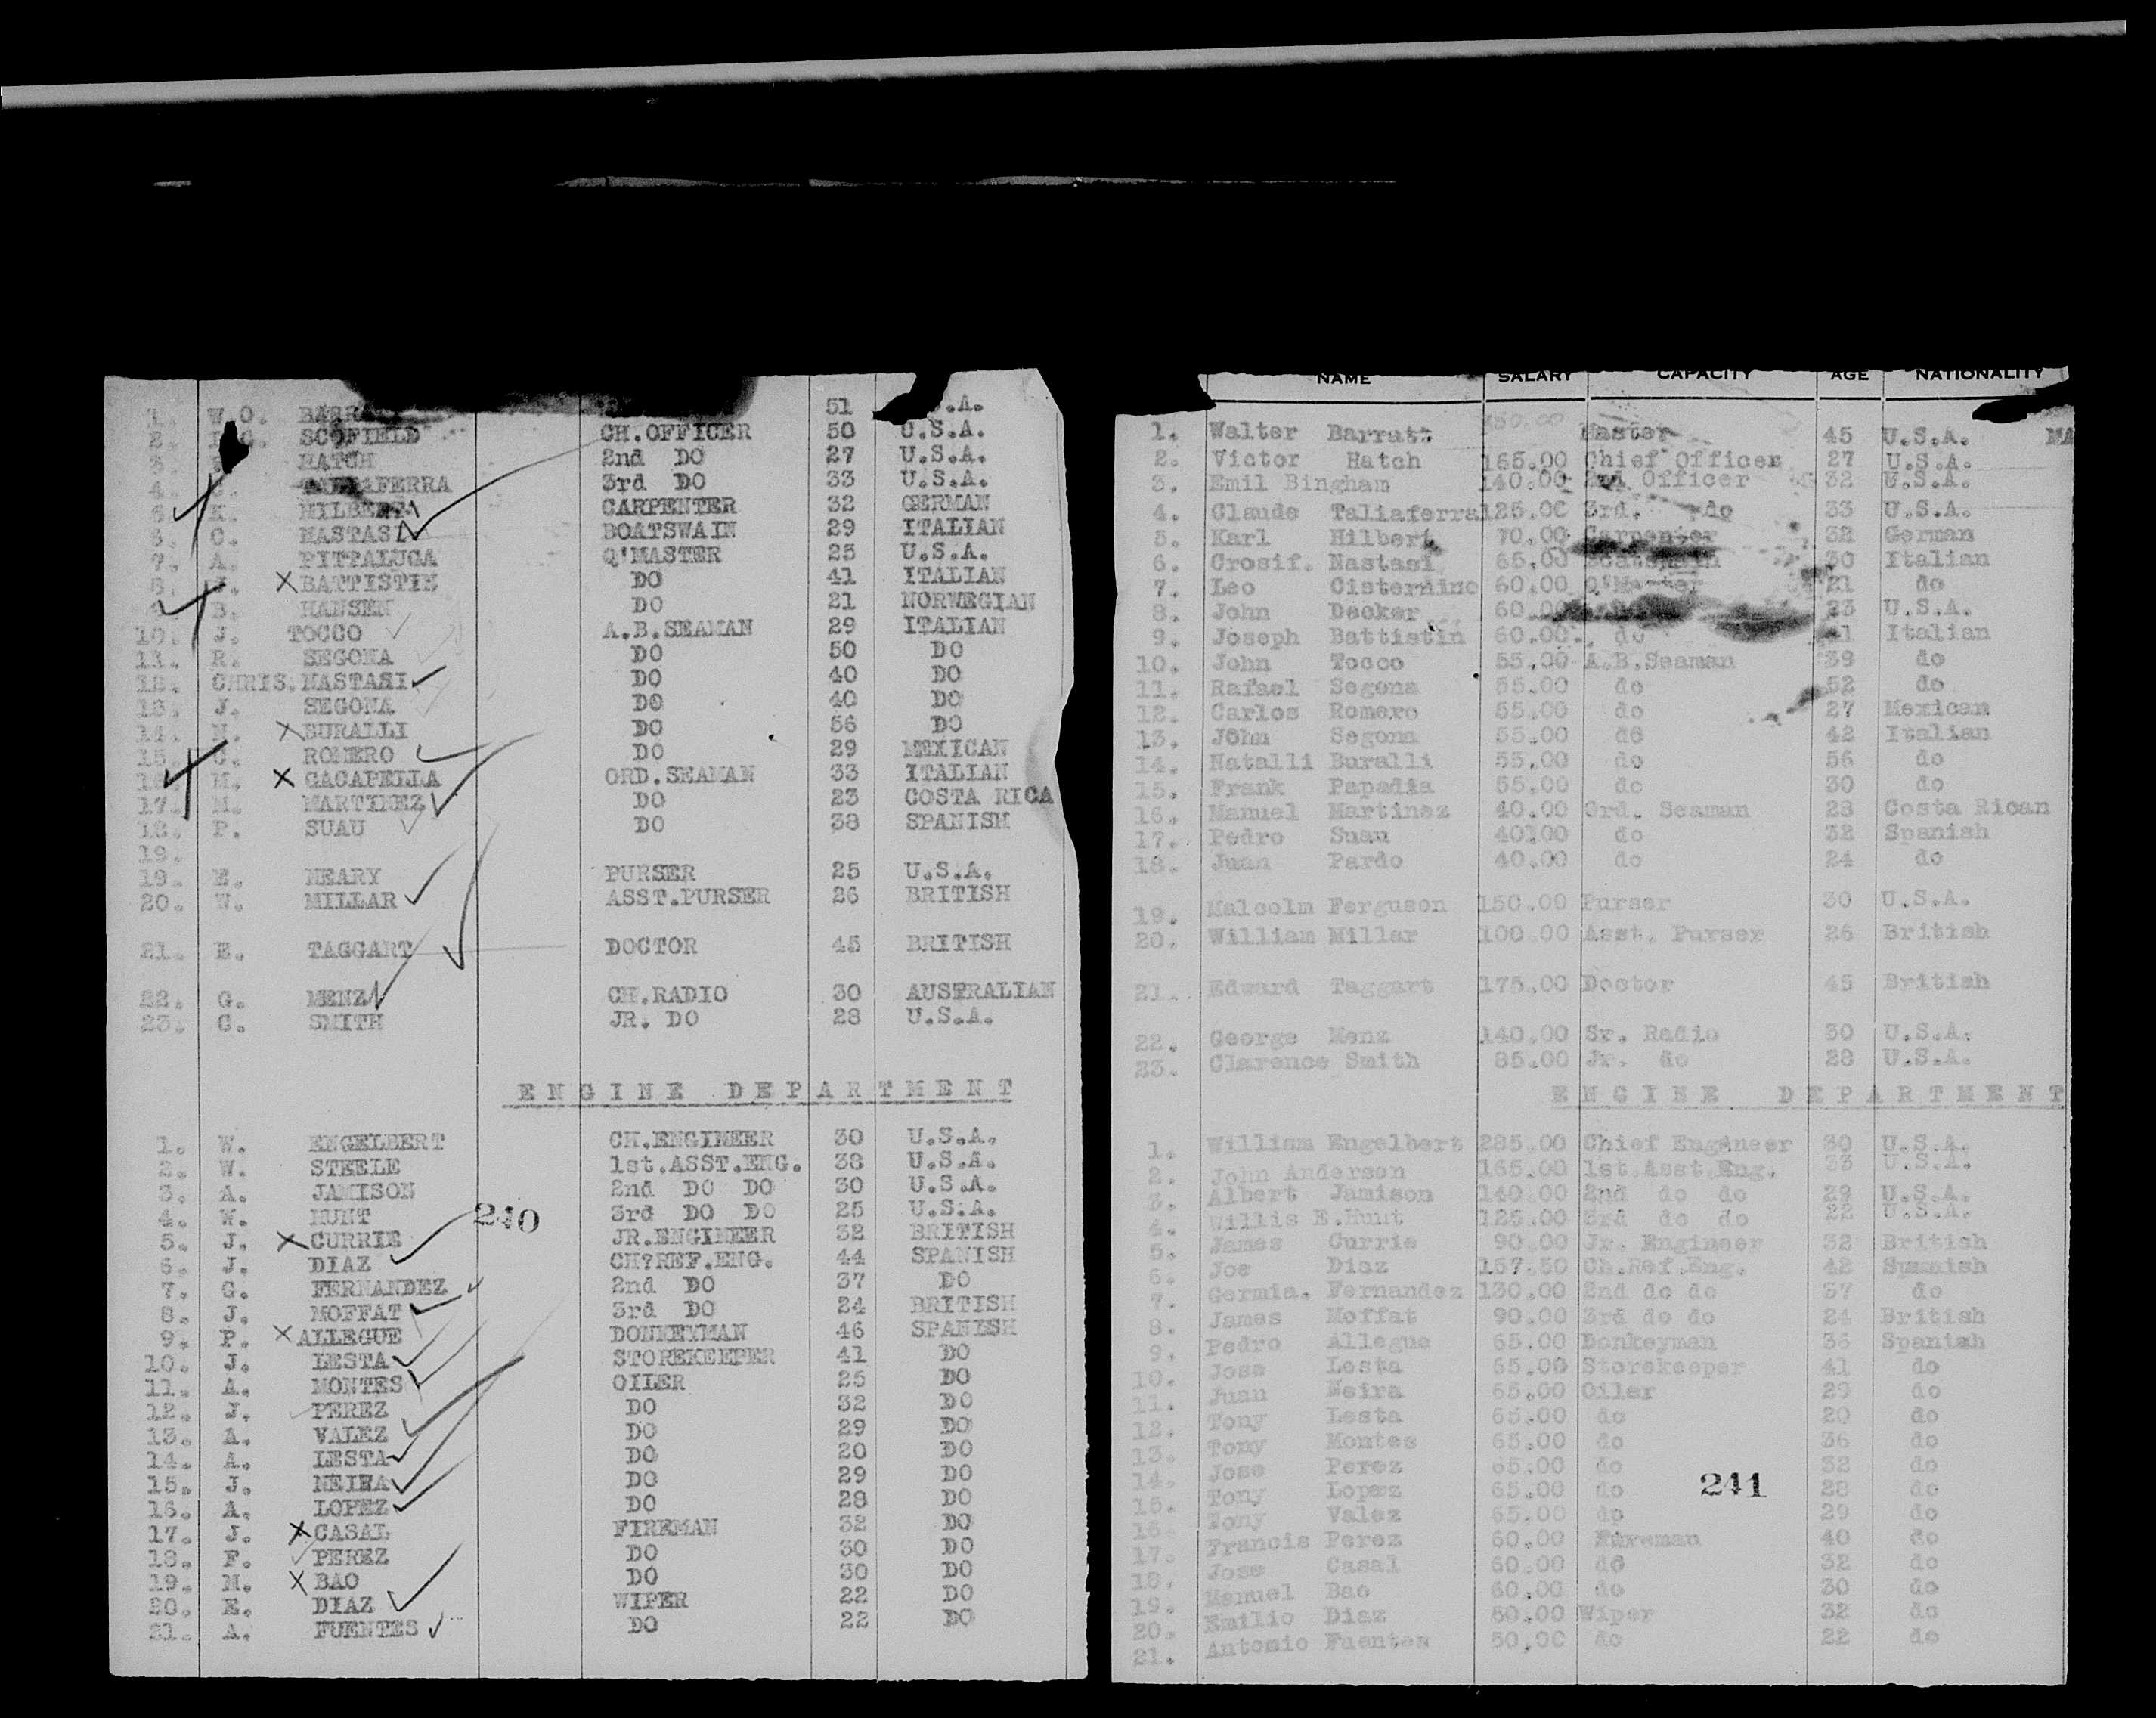 1. W.O. 51 .A.
2. SCOFIELD CH.OFFICER 50 U.S.A.
3. HATCH 2nd DO 27 U.S.A.
4. FERRA 3rd DO 33 U.S.A.
5. K. HILBERT CARPENTER 32 GERMAN
6. C. NASTASI BOATSWAIN 29 ITALIAN
7. A. PITTALUGA Q'MASTER 25 U.S.A.
8. J. X BATTISTIN DO 41 ITALIAN
9. B. HANSEN DO 21 NORWEGIAN
10. J. TOCCO A.B.SEAMAN 29 ITALIAN
11. R. SEGONA DO 50 DO
12. CHRIS. NASTASI DO 40 DO
13. J. SEGONA DO 40 DO
14. N. X BURALLI DO 56 DO
15. C. ROMERO DO 29 MEXICAN
16. M. X GACAPELLA ORD.SEAMAN 33 ITALIAN
17. M. MARTINEZ DO 23 COSTA RICA
18. P. SUAU DO 38 SPANISH
19.
19. E. NEARY PURSER 25 U.S.A.
20. W. MILLAR ASST.PURSER 26 BRITISH
21. E. TAGGART DOCTOR 45 BRITISH
22. G. MENZ CH.RADIO 30 AUSTRALIAN
23. C. SMITH JR. DO 28 U.S.A.
ENGINE DEPARTMENT
1. W. ENGELBERT CH.ENGINEER 30 U.S.A.
2. W. STEELE 1st.ASST.ENG. 38 U.S.A.
3. A. JAMISON 2nd DO DO 30 U.S.A.
4. W. HUNT 240 3rd DO DO 25 U.S.A.
5. J. X CURRIE JR.ENGINEER 32 BRITISH
6. J. DIAZ CH?REF.ENG. 44 SPANISH
7. G. FERNANDEZ 2nd DO 37 DO
8. J. MOFFAT 3rd DO 24 BRITISH
9. P. X ALLEGUE DONKEYMAN 46 SPANISH
10. J. LESTA STOREKEEPER 41 DO
11. A. MONTES OILER 25 DO
12. J. PEREZ DO 32 DO
13. A. VALEZ DO 29 DO
14. A. LESTA DO 20 DO
15. J. NEIRA DO 29 DO
16. A. LOPEZ DO 28 DO
17. J. X CASAL FIREMAN 32 DO
18. F. PEREZ DO 30 DO
19. M. X BAO DO 30 DO
20. E. DIAZ WIPER 22 DO
21. A. FUENTES DO 22 DO
NAME SALARY CAPACITY AGE NATIONALITY
1. Walter Barratt Master 45 U.S.A. MA
2. Victor Hatch 165.00 Chief Officer 27 U.S.A.
3. Emil Bingham 140.00 2nd Officer 32 U.S.A.
4. Claude Taliaferra 125.00 3rd. do 33 U.S.A.
5. Karl Hilbert 70.00 Carpenter 32 German
6. Crosif. Nastasi 65.00 Boatswain 30 Italian
7. Leo Cisternino 60.00 Q'Master 21 do
8. John Decker 60.00 23 U.S.A.
9. Joseph Battistin 60.00 do 41 Italian
10. John Tocco 55.00 A.B.Seaman 39 do
11. Rafael Segona 55.00 do 52 do
12. Carlos Romero 55.00 do 27 Mexican
13. John Segona 55.00 do 42 Italian
14. Natalli Buralli 55.00 do 56 do
15. Frank Papadia 55.00 do 30 do
16. Manuel Martinez 40.00 Ord. Seaman 23 Costa Rican
17. Pedro Suau 40100 do 32 Spanish
18. Juan Pardo 40.00 do 24 do
19. Malcolm Ferguson 150.00 Purser 30 U.S.A.
20. William Millar 100.00 Asst. Purser 26 British
21. Edward Taggart 175.00 Doctor 45 British
22. George Menz 140.00 Sr. Radio 30 U.S.A.
23. Clarence Smith 85.00 Jr. do 28 U.S.A.
ENGINE DEPARTMENT
1. William Engelbert 285.00 Chief Engineer 30 U.S.A.
2. John Anderson 165.00 1st Asst Eng. 33 U.S.A.
3. Albert Jamison 140.00 2nd do do 29 U.S.A.
4. Willis E.Hunt 125.00 3rd do do 22 U.S.A.
5. James Currie 90.00 Jr. Engineer 32 British
6. Joe Diaz 157.50 Ch.Ref.Eng. 42 Spanish
7. Germia. Fernandez 130.00 2nd do do 37 do
8. James Moffat 90.00 3rd do do 24 British
9. Pedro Allegue 65.00 Donkeyman 36 Spanish
10. Jose Lesta 65.00 Storekeeper 41 do
11. Juan Neira 65.00 Oiler 29 do
12. Tony Lesta 65.00 do 20 do
13. Tony Montes 65.00 do 36 do
14. Jose Perez 65.00 do 32 do
15. Tony Lopez 65.00 do 241 28 do
16. Tony Valez 65.00 do 29 do
17. Francis Perez 60.00 Fireman 40 do
18. Jose Casal 60.00 do 32 do
19. Manuel Bao 60.00 do 30 do
20. Emilio Diaz 50.00 Wiper 32 do
21. Antonio Fuentes 50.00 do 22 do